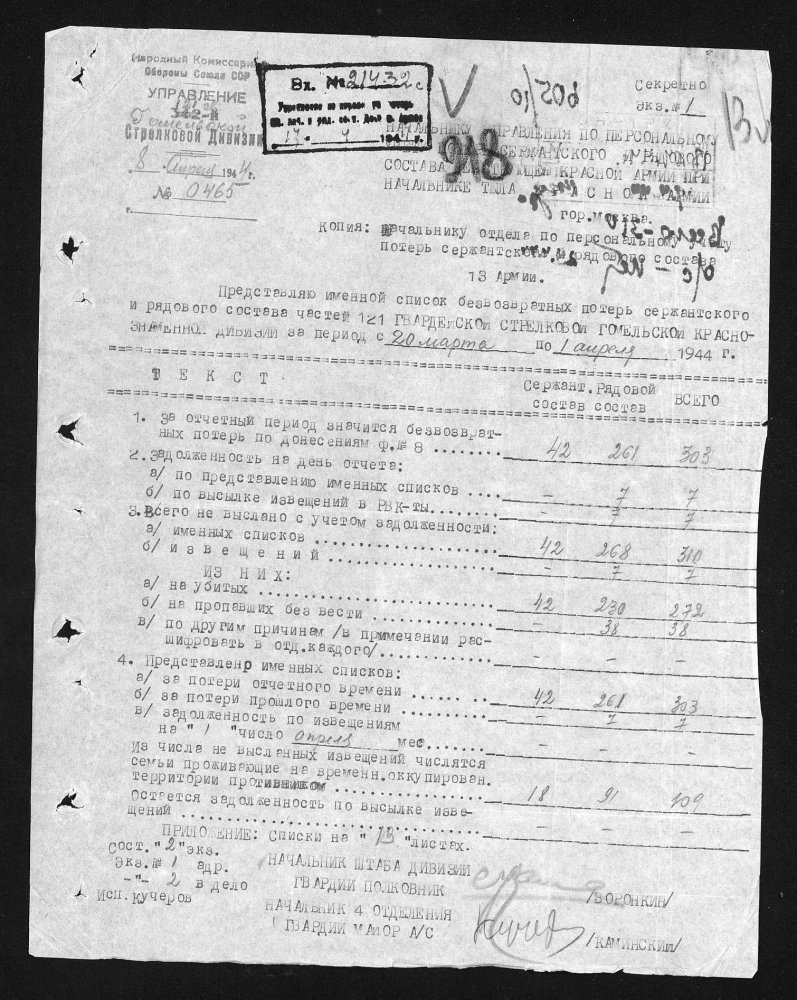 Народный Комиссариат
Обороны Союза ССР
УПРАВЛЕНИЕ
121 гв.
Гомельской
Стрелковой Дивизии
8 Апреля 1944 г.
№ 0465
г.
Вх. № 21432с
17 4 1944 г.
Секретно
экз.№ 1
918
НАЧАЛЬНИКУ УПРАВЛЕНИЯ ПО ПЕРСОНАЛЬНОМУ
СЕРЖАНТСКОГО И РЯДОВОГО
СОСТАВА КРАСНОЙ АРМИИ ПРИ
НАЧАЛЬНИКЕ ТЫЛА АРМИИ
гор.Москва.
Копия: Начальнику отдела по персональному учету
потерь сержантского и рядового состава
13 Армии.
Представляю именной список безвозвратных потерь сержантского
и рядового состава частей 121 ГВАРДЕЙСКОЙ СТРЕЛКОВОЙ ГОМЕЛЬСКОЙ КРАСНО-
ЗНАМЕННОЙ ДИВИЗИИ за период с 20 марта по 1 апреля 1944 г.
ТЕКСТ Сержант. Рядовой ВСЕГО
состав состав
1. За отчетный период значится безвозврат-
ных потерь по донесениям ф.№ 8 ........ 42 261 303
2. Задолженность на день отчета:
а/ по представлению именных списков .... - 7 7
б/ по высылке извещений в РВК-ты........ - 7 7
3. Всего не выслано с учетом задолженности:
а/ именных списков .................... 42 268 310
б/ извещений .................... - 7 7
ИЗ НИХ:
а/ на убитых .................... 42 230 272
б/ на пропавших без вести ............. - 38 38
в/ по другим причинам /в примечании рас-
шифровать в отд.каждого/............. - - -
4. Представлено именных списков:
а/ за потери отчетного времени ...... .. 42 261 303
б/ за потери прошлого времени ......... - 7 7
в/ задолженность по извещениям
на " 1 "число апреля мес........ - - -
Из числа не высланных извещений числятся
семьи проживающие на временн.оккупирован.
территории противником ................ 18 91 109
Остается задолженность по высылке изве-
щений .................... - - -
ПРИЛОЖЕНИЕ: Списки на " 13 "листах.
Сост."2"экз.
Экз.№ 1 адр.
-"- 2 в дело
Исп.Кучеров
НАЧАЛЬНИК ШТАБА ДИВИЗИИ
ГВАРДИИ ПОЛКОВНИК /ВОРОНКИН/
НАЧАЛЬНИК 4 ОТДЕЛЕНИЯ
ГВАРДИИ МАЙОР А/С /КАМИНСКИЙ/